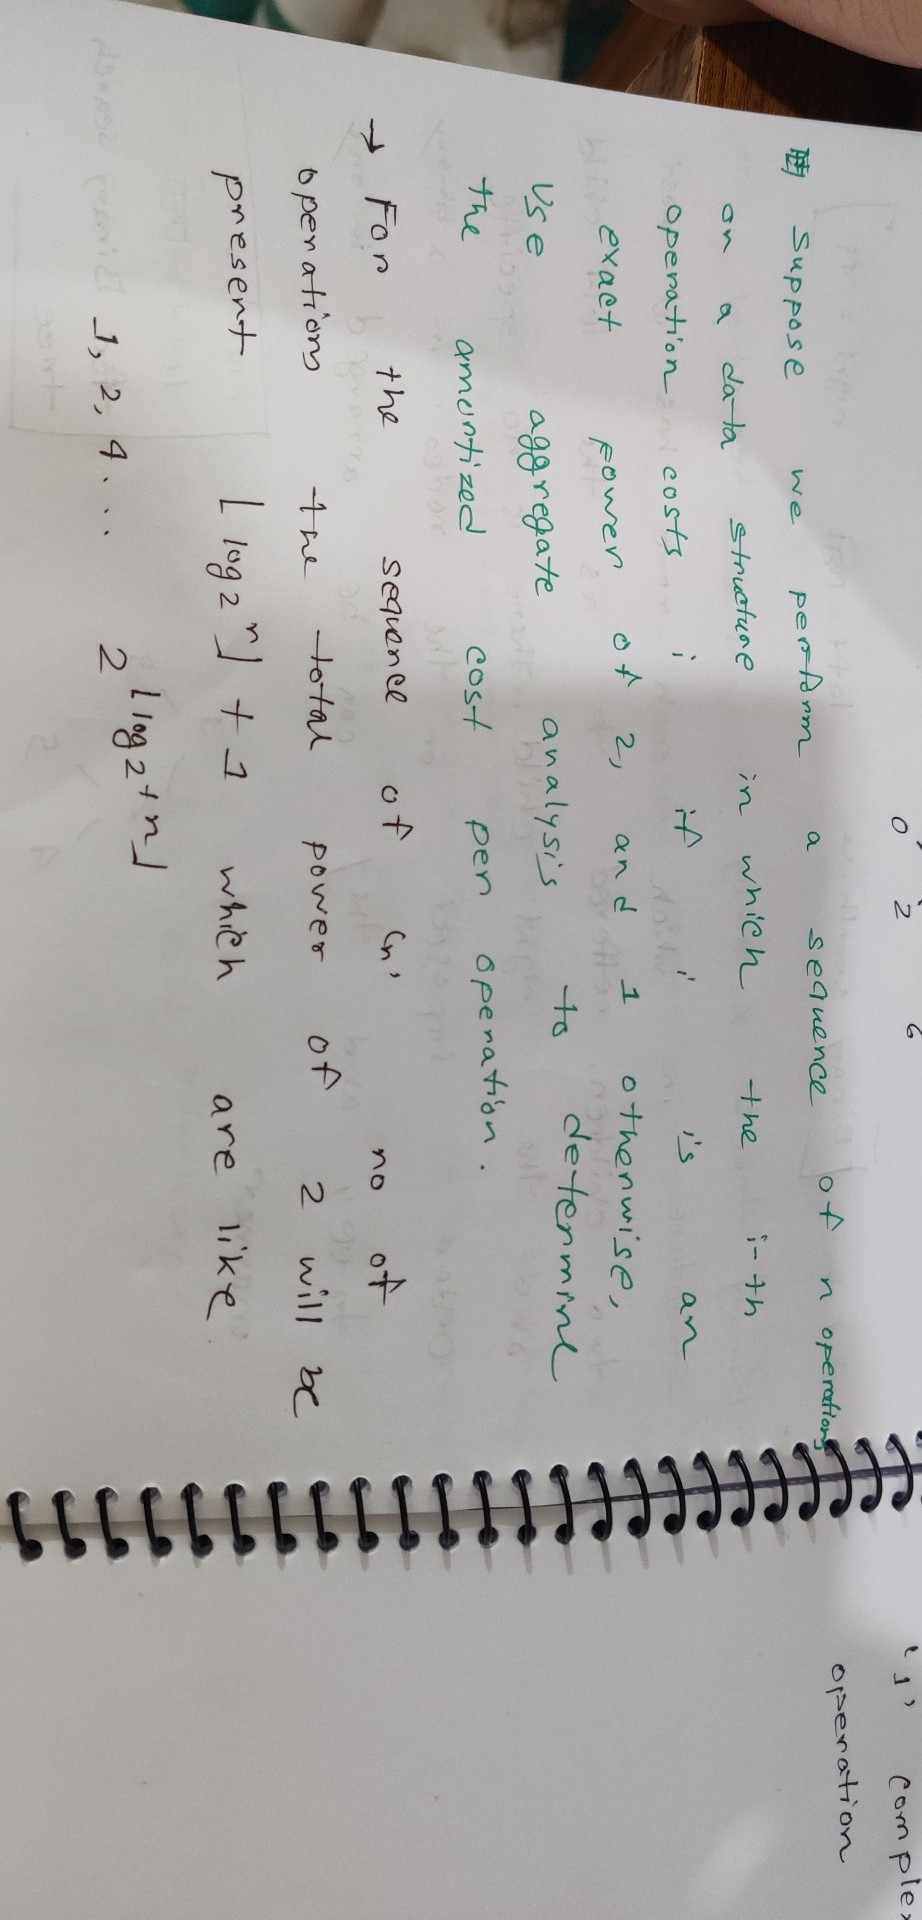 0 2 6
Suppose we perform a sequence of n operations
on a data structure in which the i-th
operation costs i if i is an
exact power of 2, and 1 otherwise,
Use aggregate analysis to determine
the amortized cost per operation.
→ For the sequence of 'n' no of
operations the total power of 2 will be
present ⌊log2 n⌋ + 1 which are like
1, 2, 4 ... 2^⌊log2+n⌋
'1' complex
operation